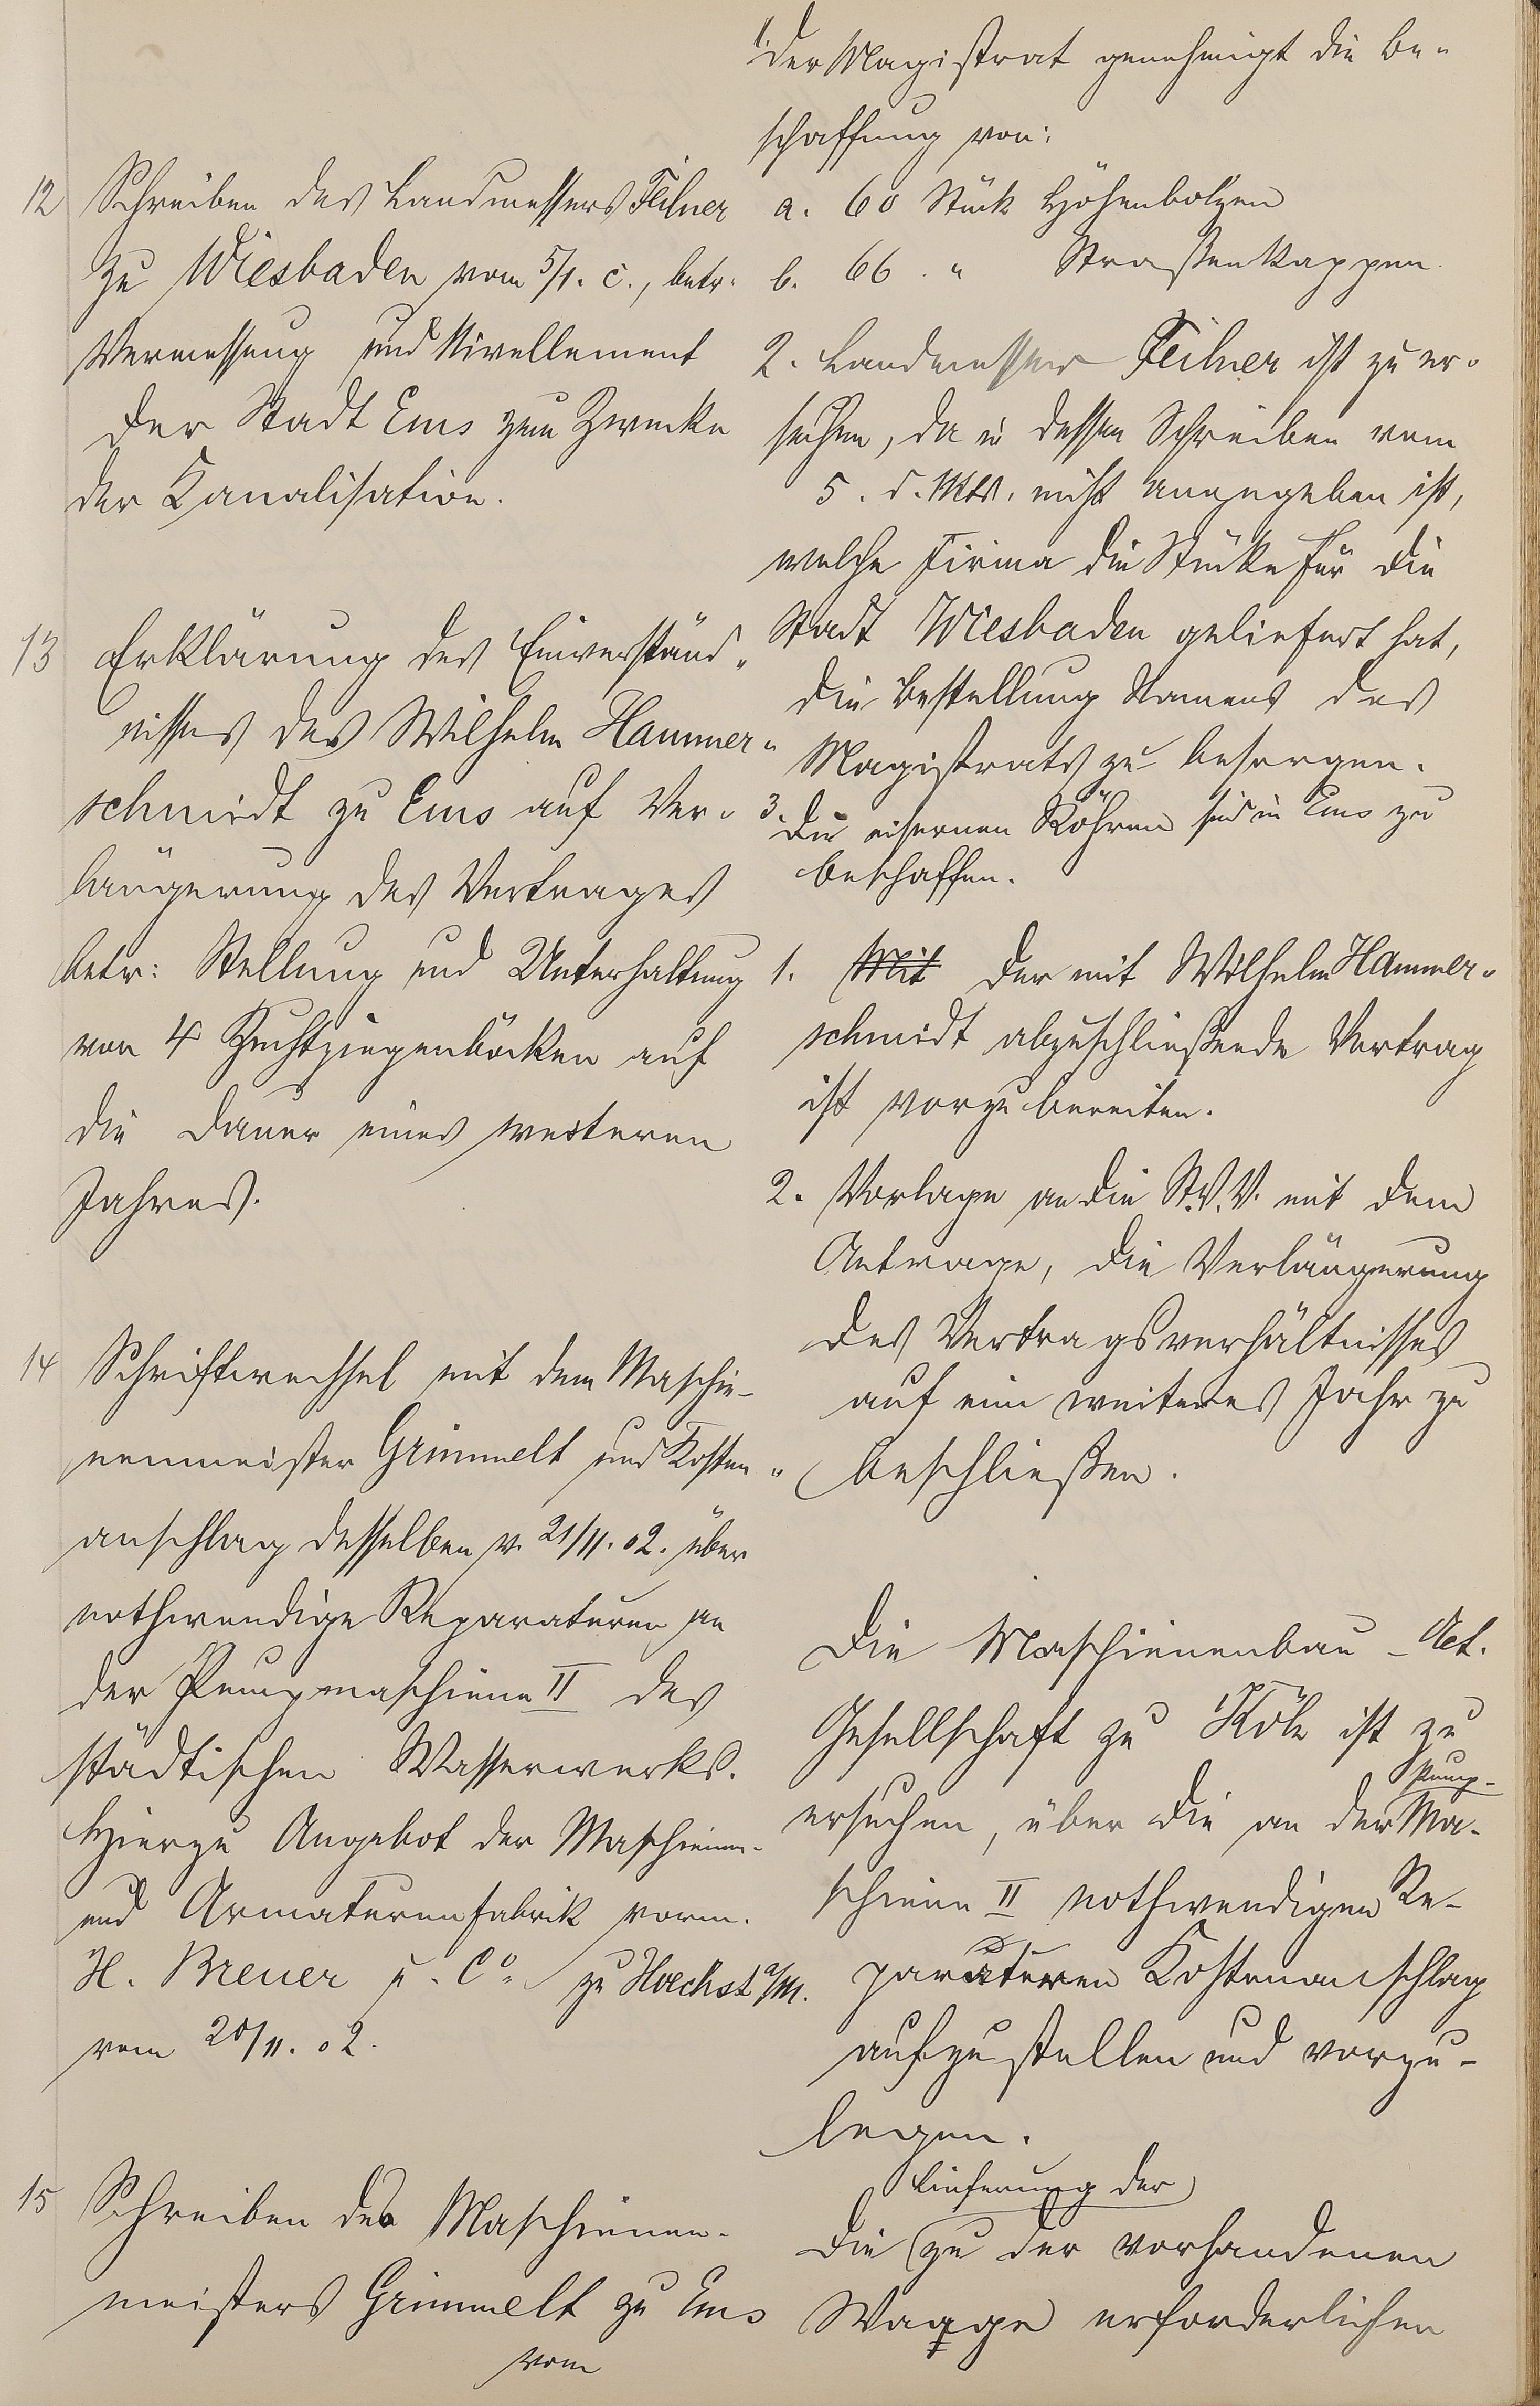 12 Schreiben des Landmessers Feilner
zu Wiesbaden vom 5/1. c., betr.
Vermessung und Nivellement
der Stadt Ems zum Zwecke
der Kanalisation.
1. Der Magistrat genehmigt die Be-
schaffung von:
a. 60 Stück Höhenbolzen
b. 66 " Straßenkappen.
2. Landmesser Feilner ist zu er-
suchen, da in dessen Schreiben vom
5. d. Mts. nicht angegeben ist,
welche Firma die Stücke für die
Stadt Wiesbaden geliefert hat,
die Bestellung Namens des
Magistrats zu besorgen.
3. Die eisernen Röhren sind in Ems zu
beschaffen.
13 Erklärung des Einverständ-
nisses des Wilhelm Hammer-
schmidt zu Ems auf Ver-
längerung des Vertrages
betr: Stellung und Unterhaltung
von 4 Zuchtziegenböcken auf
die Dauer eines weiteren
Jahres.
1. Mit der mit Wilhelm Hammer-
schmidt abzuschließende Vertrag
ist vorzubereiten.
2. Vorlage an die St.V.V. mit dem
Antrage, die Verlängerung
des Vertragsverhältnisses
auf ein weiteres Jahr zu
beschließen.
14 Schriftwechsel mit dem Maschie-
nenmeister Grimmelt und Kosten-
anschlag desselben v. 21/11.02. über
nothwendige Reparaturen an
der Pumpmaschiene II des
städtischen Wasserwerks.
Hierzu Angebot der Maschienen-
und Armaturenfabrik vorm.
H. Breuer u. Co. zu Hoechst a/M.
vom 20/11.02.
Die Maschienenbau-Act.
Gesellschaft zu Köln ist zu
ersuchen, über die an der Pump-Ma-
schiene II nothwendigen Re-
paraturen Kostenanschlag
aufzustellen und vorzu-
legen.
15 Schreiben des Maschienen-
meisters Grimmelt zu Ems
vom
Lieferung der
Die zu der vorhandenen
Waage erforderlichen